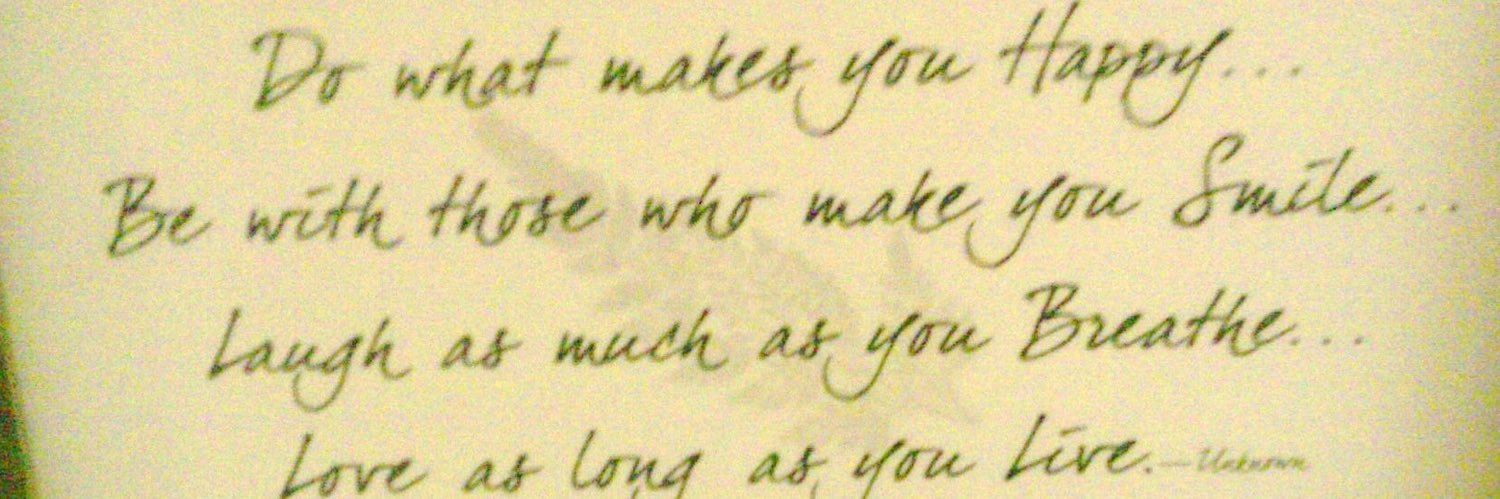 Do what makes you Happy...
Be with those who make you Smile...
Laugh as much as you Breathe...
Love as long as you Live. —Unknown